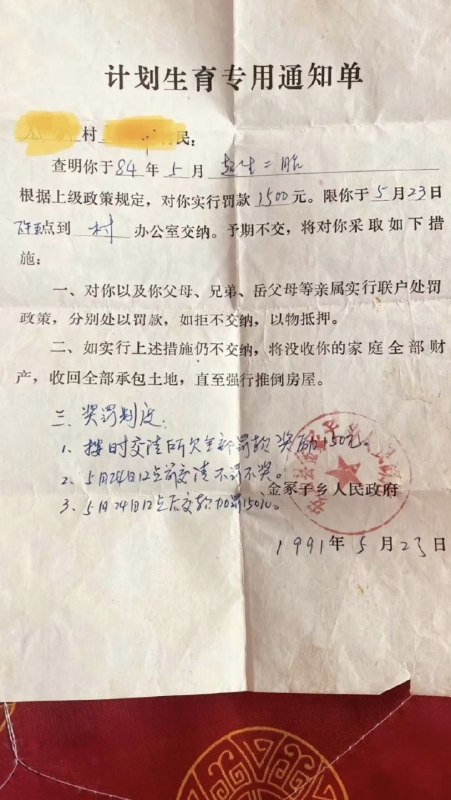 计划生育专用通知单
村 村民：
查明你于84年5月 超生二胎
根据上级政策规定，对你实行罚款1500元。限你于5月23日
下午5点到 村 办公室交纳。予期不交，将对你采取如下措
施：
一、对你以及你父母、兄弟、岳父母等亲属实行联户处罚
政策，分别处以罚款，如拒不交纳，以物抵押。
二、如实行上述措施仍不交纳，将没收你的家庭全部财
产，收回全部承包土地，直至强行推倒房屋。
三、奖罚制度：
1、按时交清所欠全部罚款奖励150元。
2、5月24日12点前交清不罚不奖。
3、5月24日12点后交款加罚150元。
金冢子乡人民政府
1991年5月23日